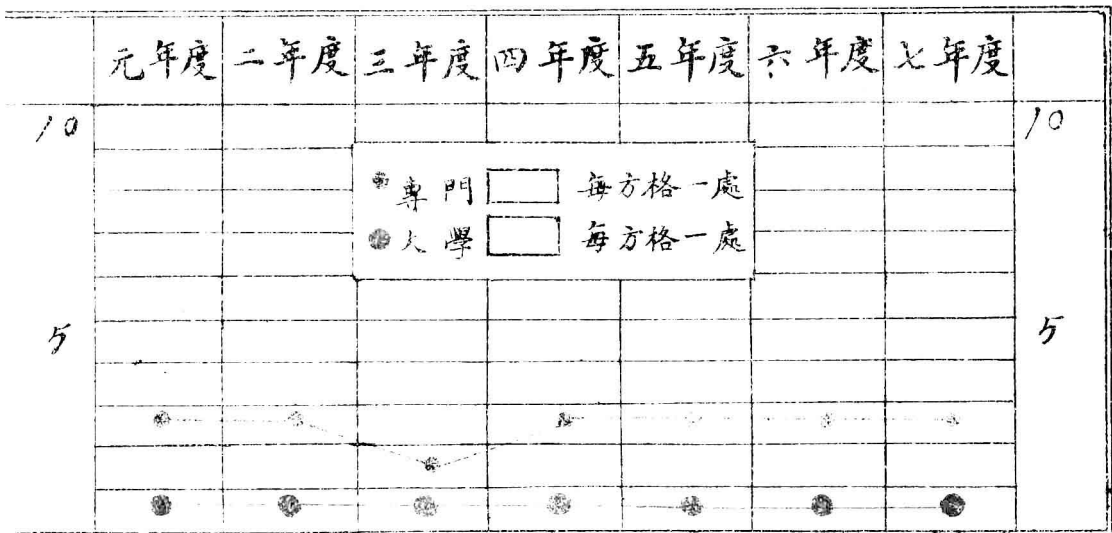 元年度 二年度 三年度 四年度 五年度 六年度 七年度
10 10
專門 每方格一處
大學 每方格一處
5 5